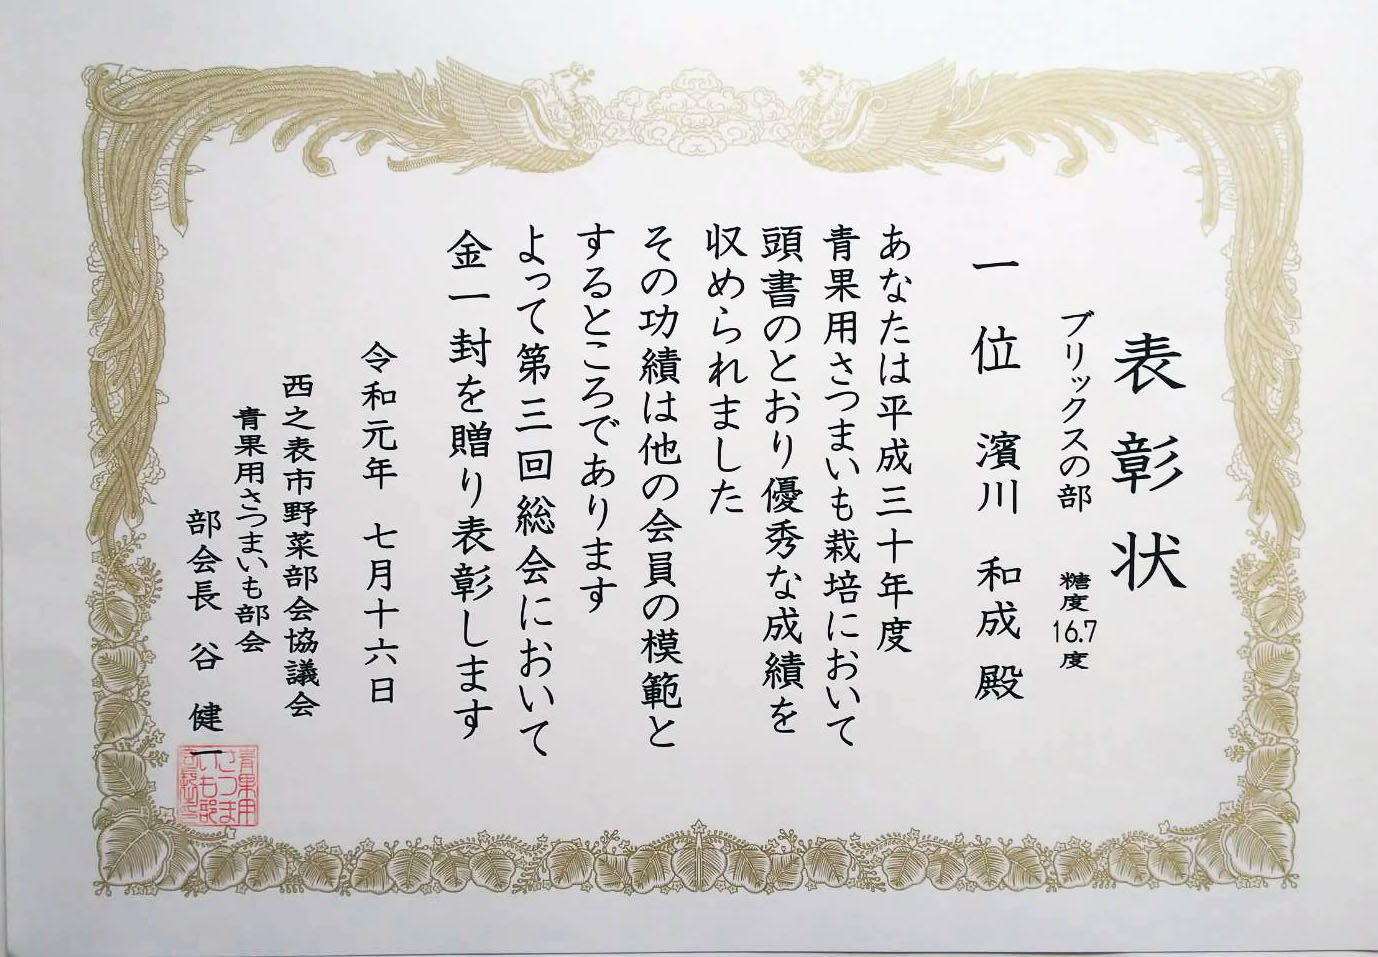 表彰状
ブリックスの部 糖度16.7度
一位 濱川 和成 殿
あなたは平成三十年度
青果用さつまいも栽培において
頭書のとおり優秀な成績を
収められました
その功績は他の会員の模範と
するところであります
よって第三回総会において
金一封を贈り表彰します
令和元年 七月十六日
西之表市野菜部会協議会
青果用さつまいも部会
部会長 谷 健一
青果用
さつま
いも部